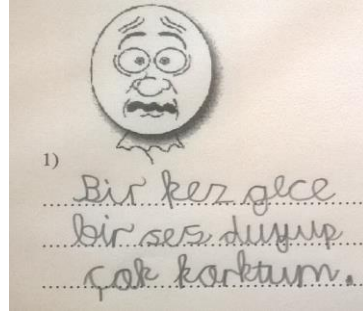 1)
Bir kez gece
bir ses duyup
çok korktum.